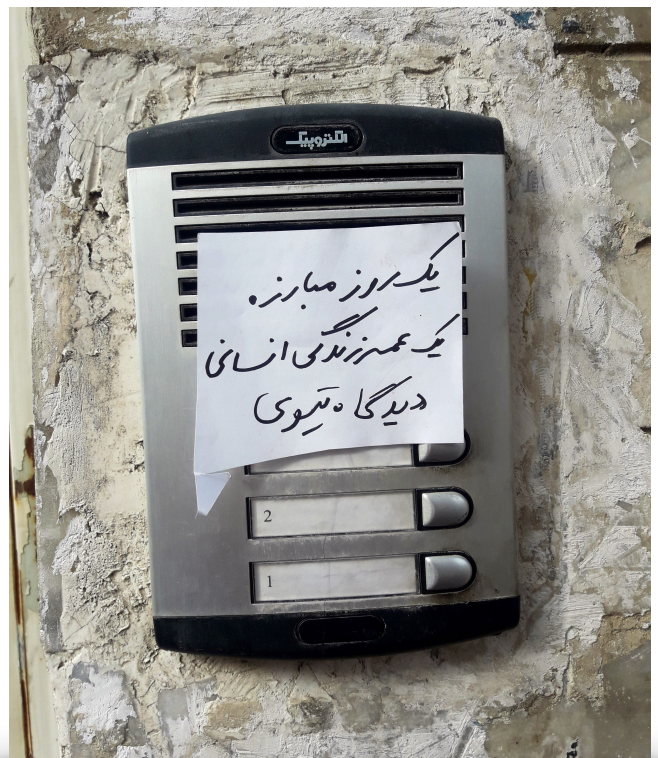 الکتروپیک
یک روز مبارزه
یک عمر زندگی انسانی
دیدگاه تیوی
2
1